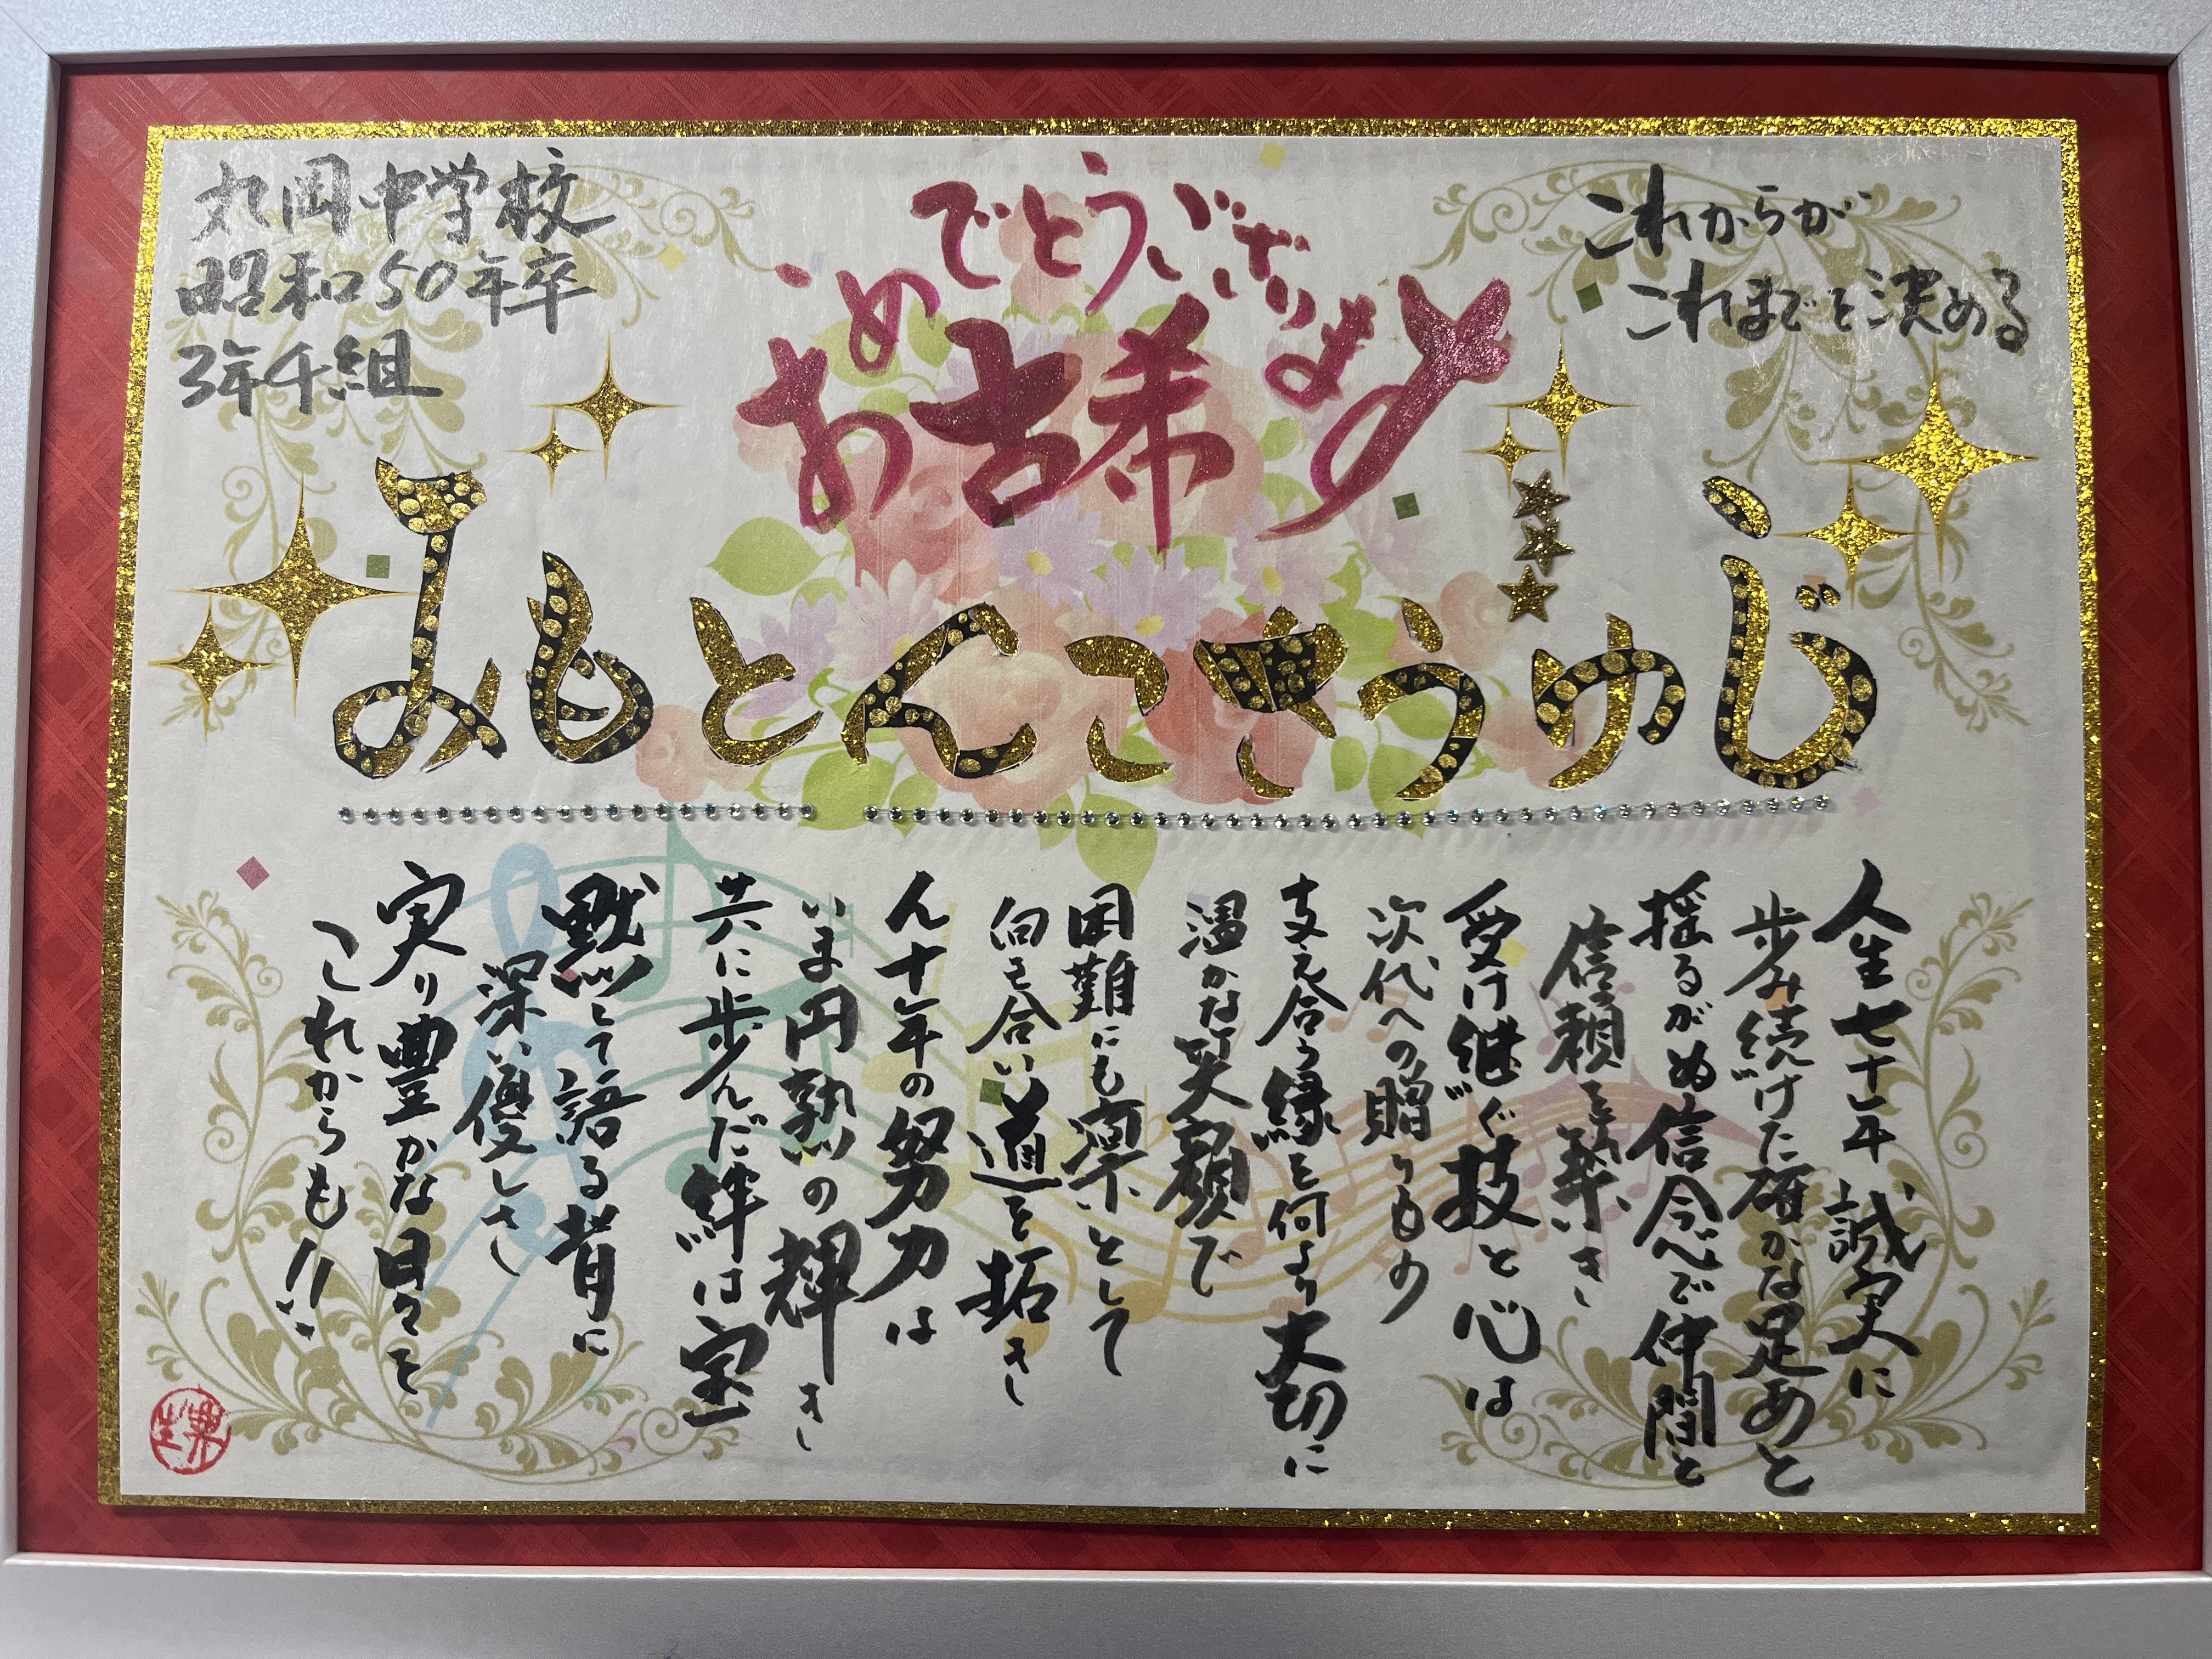 丸岡中学校
昭和50年卒
3年4組
古希
おめでとうございます
これからが
これまでを決める
じゆうさこんともみ
人生七十年 誠実に
歩み続けた確かな足あと
揺るがぬ信念で仲間と
信頼を築き
受け継ぐ技と心は
次代への贈りもの
支え合う縁を何より大切に
温かな笑顔で
困難にも凛として
向き合い道を拓き
ん十年の努力は
いま円熟の輝き
共に歩んだ絆は宝
黙して語る背に
深い優しさ
実り豊かな日々を
これからも!!